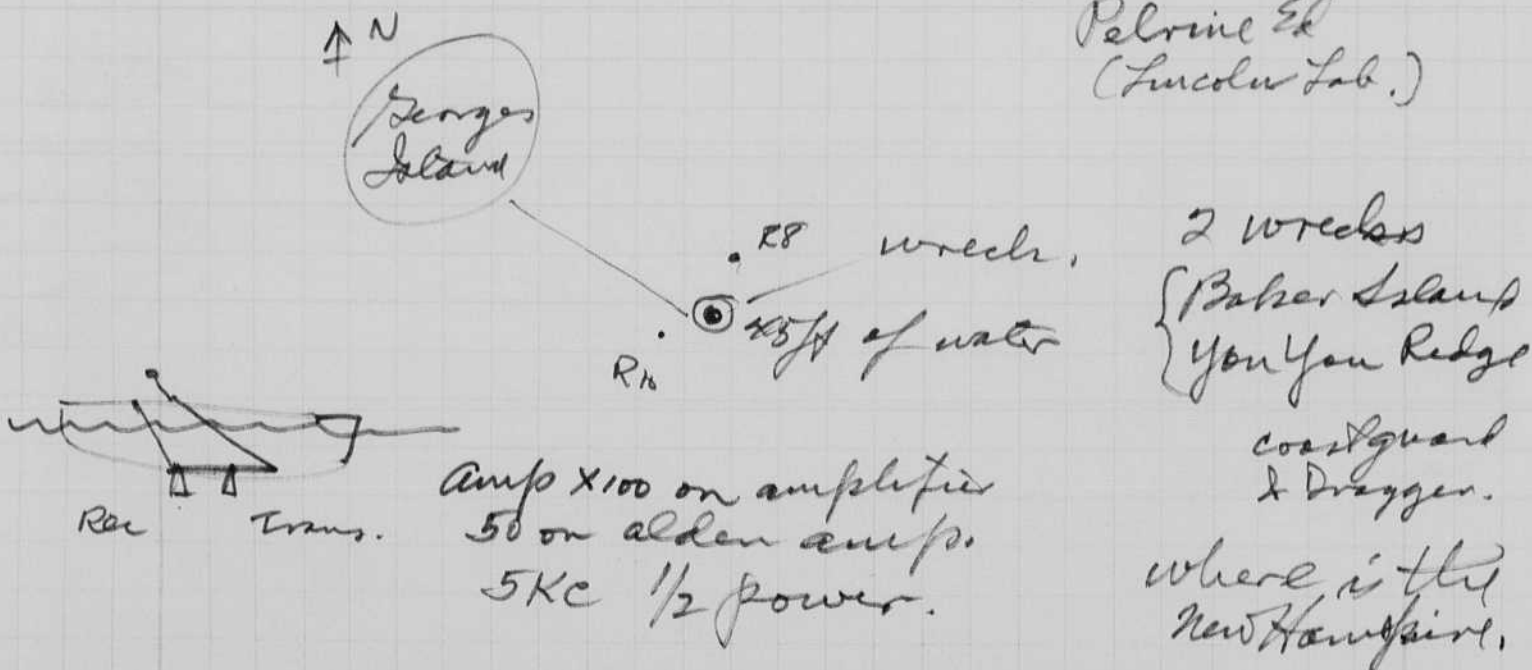 Pelrine Ed
(Lincoln Lab.)
N
Georges
Island
R8 wreck.
45ft of water
R10
2 wrecks
Baker Island
You You Ridge
coastguard
& Dragger.
Rec Trans.
amp X100 on amplifier
50 on alden amp.
5KC 1/2 power.
where is the
New Hampshire.